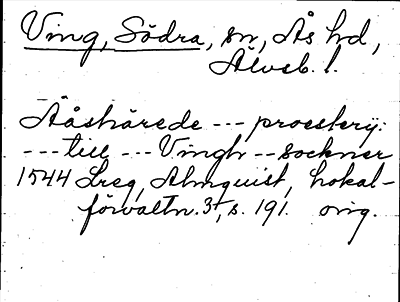 Ving, Södra, sn, Ås hd,
Älvsb. l.
Ååshärede --- proesterij:
--- till --- Vingh -- sockner
1544 Lreg, Almquist, Lokal-
förvaltn. 3:1, s. 191. orig.